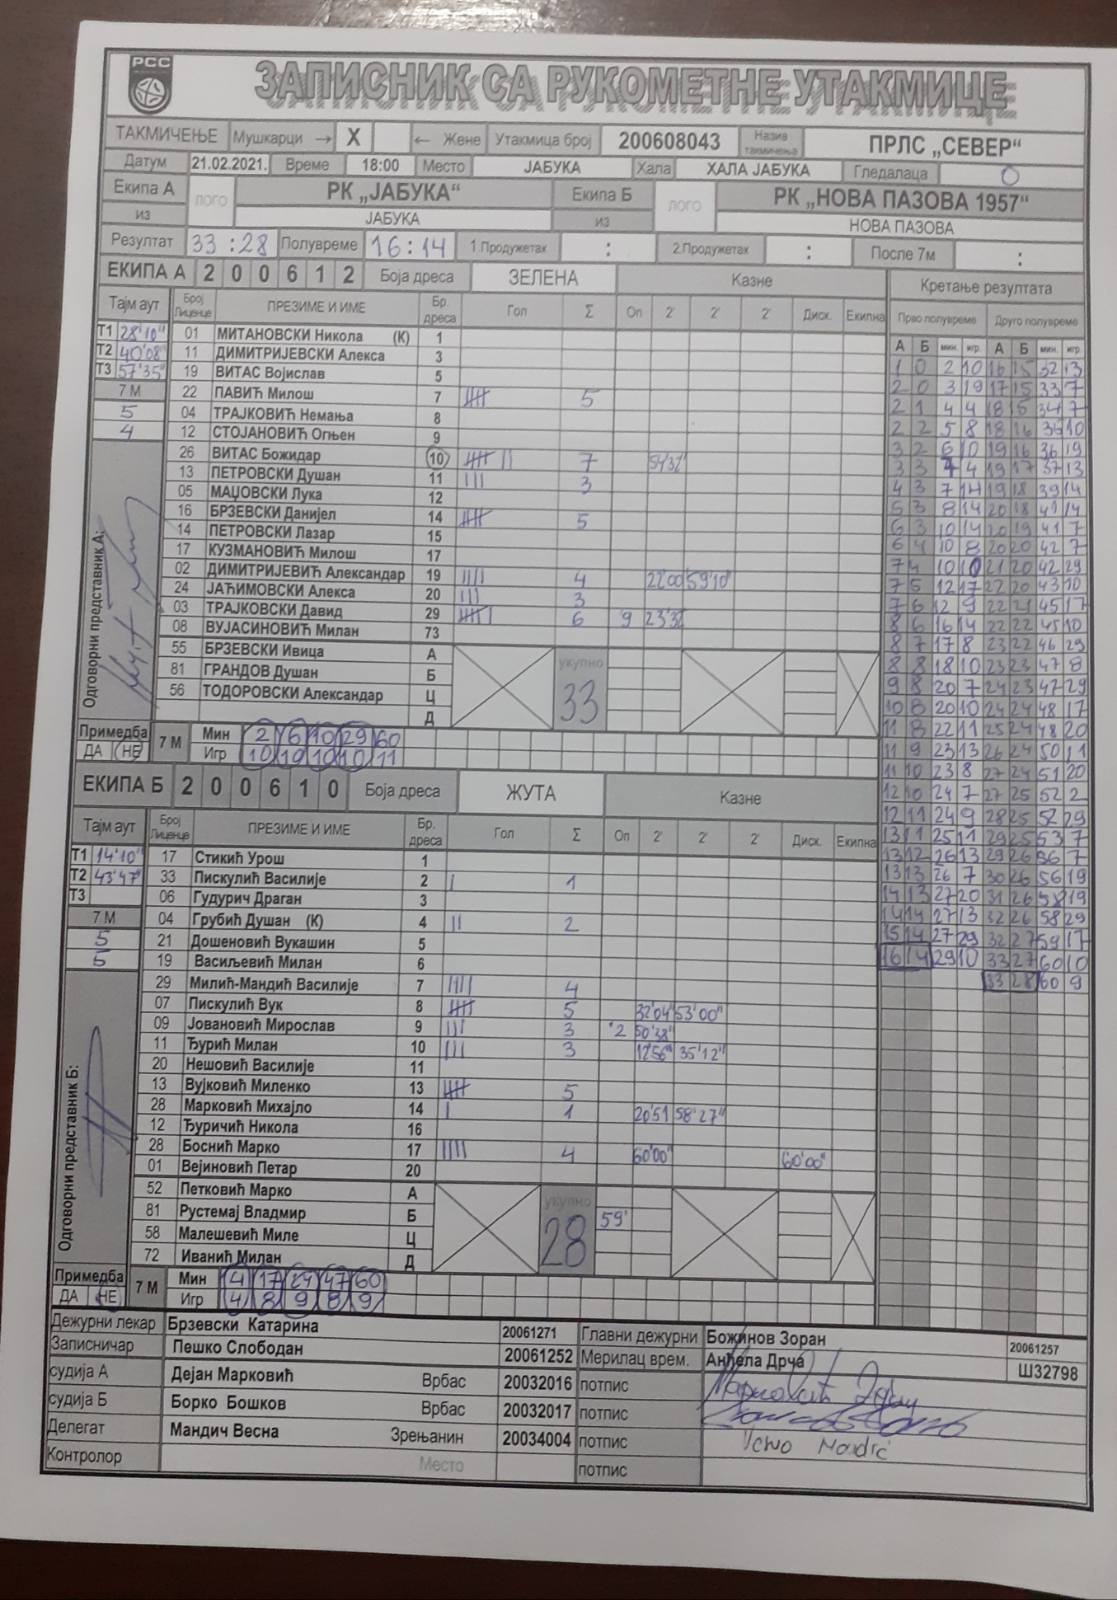 РСС
ЗАПИСНИК СА РУКОМЕТНЕ УТАКМИЦЕ
ТАКМИЧЕЊЕ Мушкарци → X ← Жене Утакмица број 200608043 Назив такмичења ПРЛС „СЕВЕР“
Датум 21.02.2021. Време 18:00 Место ЈАБУКА Хала ХАЛА ЈАБУКА Гледалаца 0
Екипа А лого РК „ЈАБУКА“ Екипа Б лого РК „НОВА ПАЗОВА 1957“
из ЈАБУКА из НОВА ПАЗОВА
Резултат 33:28 Полувреме 16:14 1.Продужетак : 2.Продужетак : После 7м :
ЕКИПА А 2 0 0 6 1 2 Боја дреса ЗЕЛЕНА Казне Кретање резултата
Тајм аут Број Лиценце ПРЕЗИМЕ И ИМЕ Бр. дреса Гол Σ Оп 2' 2' 2' Диск. Екипна Прво полувреме Друго полувреме
А Б мин. игр. А Б мин. игр.
Т1 28'10" 01 МИТАНОВСКИ Никола (К) 1
Т2 40'08" 11 ДИМИТРИЈЕВСКИ Алекса 3
Т3 57'35" 19 ВИТАС Војислав 5
7 М 22 ПАВИЋ Милош 7 5
5 04 ТРАЈКОВИЋ Немања 8
4 12 СТОЈАНОВИЋ Огњен 9
26 ВИТАС Божидар 10 7 54'32"
13 ПЕТРОВСКИ Душан 11 III 3
05 МАЏОВСКИ Лука 12
16 БРЗЕВСКИ Данијел 14 5
14 ПЕТРОВСКИ Лазар 15
17 КУЗМАНОВИЋ Милош 17
02 ДИМИТРИЈЕВИЋ Александар 19 IIII 4 22'00 59'10"
24 ЈАЋИМОВСКИ Алекса 20 III 3
03 ТРАЈКОВСКИ Давид 29 6 9
08 ВУЈАСИНОВИЋ Милан 73
55 БРЗЕВСКИ Ивица А укупно
81 ГРАНДОВ Душан Б 33
56 ТОДОРОВСКИ Александар Ц
Д
Одговорни представник А:
Примедба 7 М Мин 2 6 10 29 60
ДА НЕ Игр 10 10 10 10 11
1 0 2 10 16 15 32 13
2 0 3 19 17 15 33 7
2 1 4 4 18 15 34 7
2 2 5 8 18 16 36 10
3 2 6 10 19 16 36 19
3 3 7 4 19 17 37 13
4 3 7 14 19 18 39 14
5 3 8 14 20 18 41 14
6 3 10 14 20 19 41 7
6 4 10 8 20 20 42 7
7 4 10 10 21 20 42 29
7 5 12 17 22 20 43 10
7 6 12 9 22 21 45 17
8 6 16 14 22 22 45 10
8 7 17 8 23 22 46 29
8 8 18 10 23 23 47 8
9 8 20 7 24 23 47 29
10 8 20 10 24 24 48 17
11 8 22 11 25 24 48 20
11 9 23 13 26 24 50 11
11 10 23 8 27 24 51 20
12 10 24 7 27 25 52 2
12 11 24 9 28 25 52 29
13 11 25 11 29 25 53 7
13 12 26 13 29 26 56 7
13 13 26 7 30 26 56 19
14 13 27 20 31 26 58 19
14 14 27 13 32 26 58 29
15 14 27 29 32 27 59 17
16 14 29 10 33 27 60 10
33 28 60 9
ЕКИПА Б 2 0 0 6 1 0 Боја дреса ЖУТА Казне
Тајм аут Број Лиценце ПРЕЗИМЕ И ИМЕ Бр. дреса Гол Σ Оп 2' 2' 2' Диск. Екипна
Т1 14'10" 17 Стикић Урош 1
Т2 43'47" 33 Пискулић Василије 2 I 1
Т3 06 Гудурич Драган 3
7 М 04 Грубић Душан (К) 4 II 2
5 21 Дошеновић Вукашин 5
5 19 Васиљевић Милан 6
29 Милић-Мандић Василије 7 IIII 4
07 Пискулић Вук 8 5 32'04" 53'00"
09 Јовановић Мирослав 9 III 3 2 50'38"
11 Ђурић Милан 10 III 3 12'56" 35'12"
20 Нешовић Василије 11
13 Вујковић Миленко 13 5
28 Марковић Михајло 14 I 1 20'51 58'27"
12 Ђуричић Никола 16
28 Боснић Марко 17 IIII 4 60'00" 60'00"
01 Вејиновић Петар 20
52 Петковић Марко А укупно
81 Рустемај Владмир Б 28 59'
58 Малешевић Миле Ц
72 Иванић Милан Д
Одговорни представник Б:
Примедба 7 М Мин 4 17 24 47 60
ДА НЕ Игр 4 8 9 8 9
Дежурни лекар Брзевски Катарина 20061271 Главни дежурни Божинов Зоран 20061257
Записничар Пешко Слободан 20061252 Мерилац врем. Анђела Дрча Ш32798
судија А Дејан Марковић Врбас 20032016 потпис Марковић Дејан
судија Б Борко Бошков Врбас 20032017 потпис
Делегат Мандич Весна Зрењанин 20034004 потпис
Контролор Место потпис